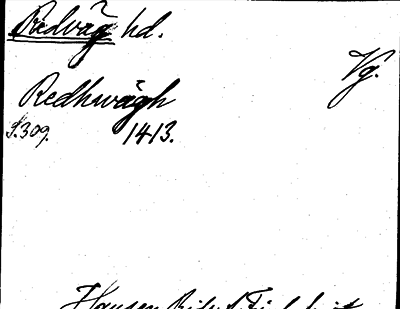 Redväg hd.
Vg.
Redhwägh
S. 309. 1413.